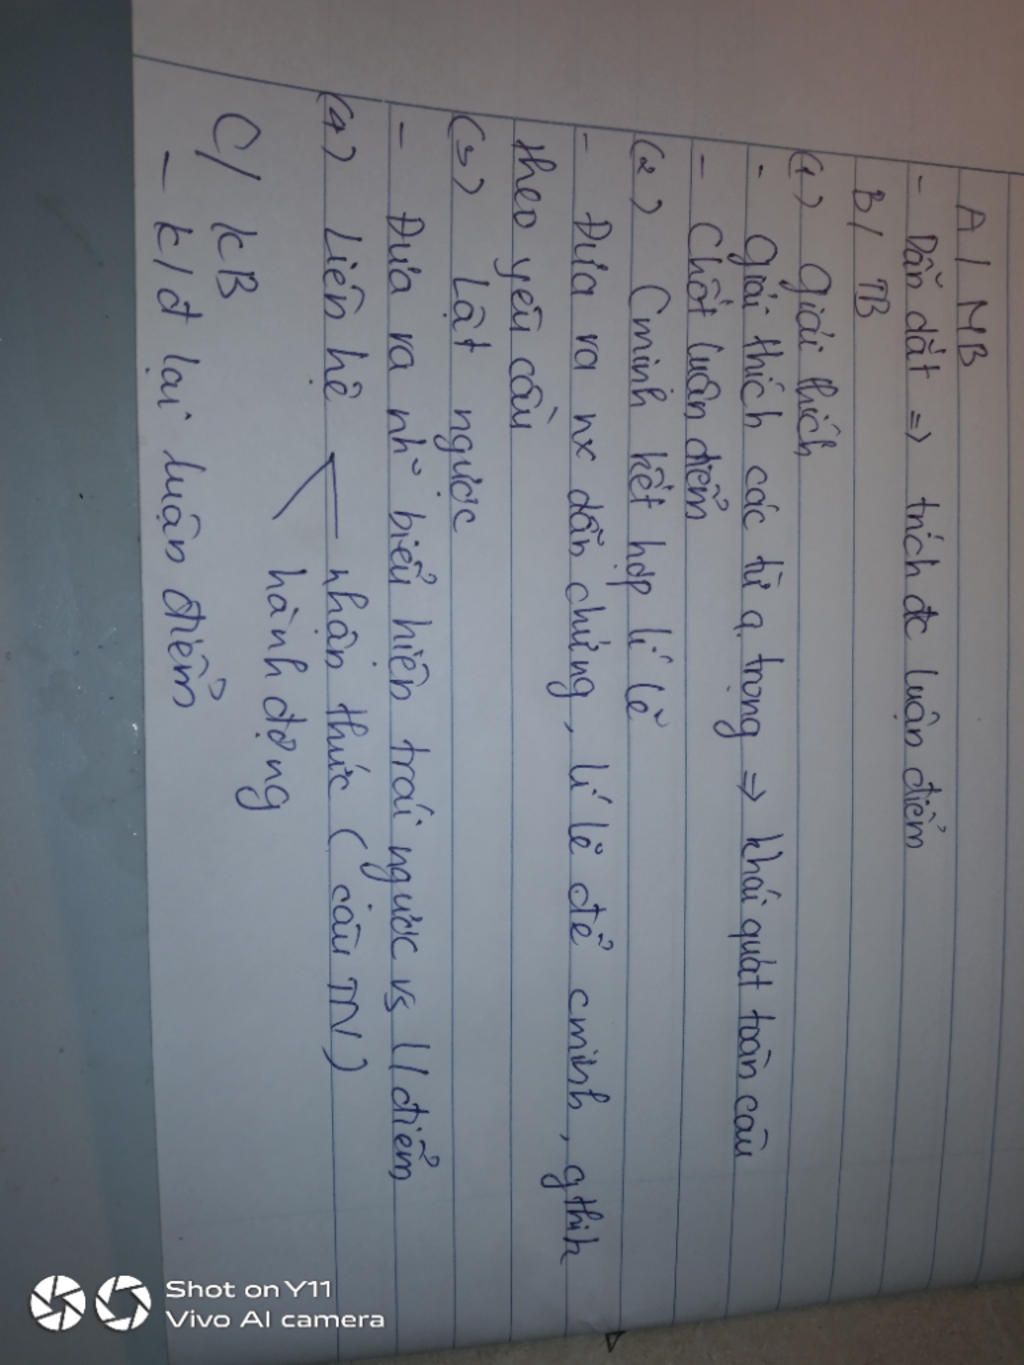 A / MB
- Dẫn dắt => trích đc luận điểm
B / TB
(1) Giải thích
- Giải thích các từ q. trọng => khái quát toàn câu
- Chốt luận điểm
(2) Cminh kết hợp lí lẽ
- Đưa ra nx dẫn chứng, lí lẽ để cminh, gthih
theo yêu cầu
(3) Lật ngược
- Đưa ra nh~ biểu hiện trái ngược vs l/điểm
(4) Liên hệ nhận thức (câu TN)
hành động
C / KB
- k/đ lại luận điểm
Shot on Y11
Vivo AI camera